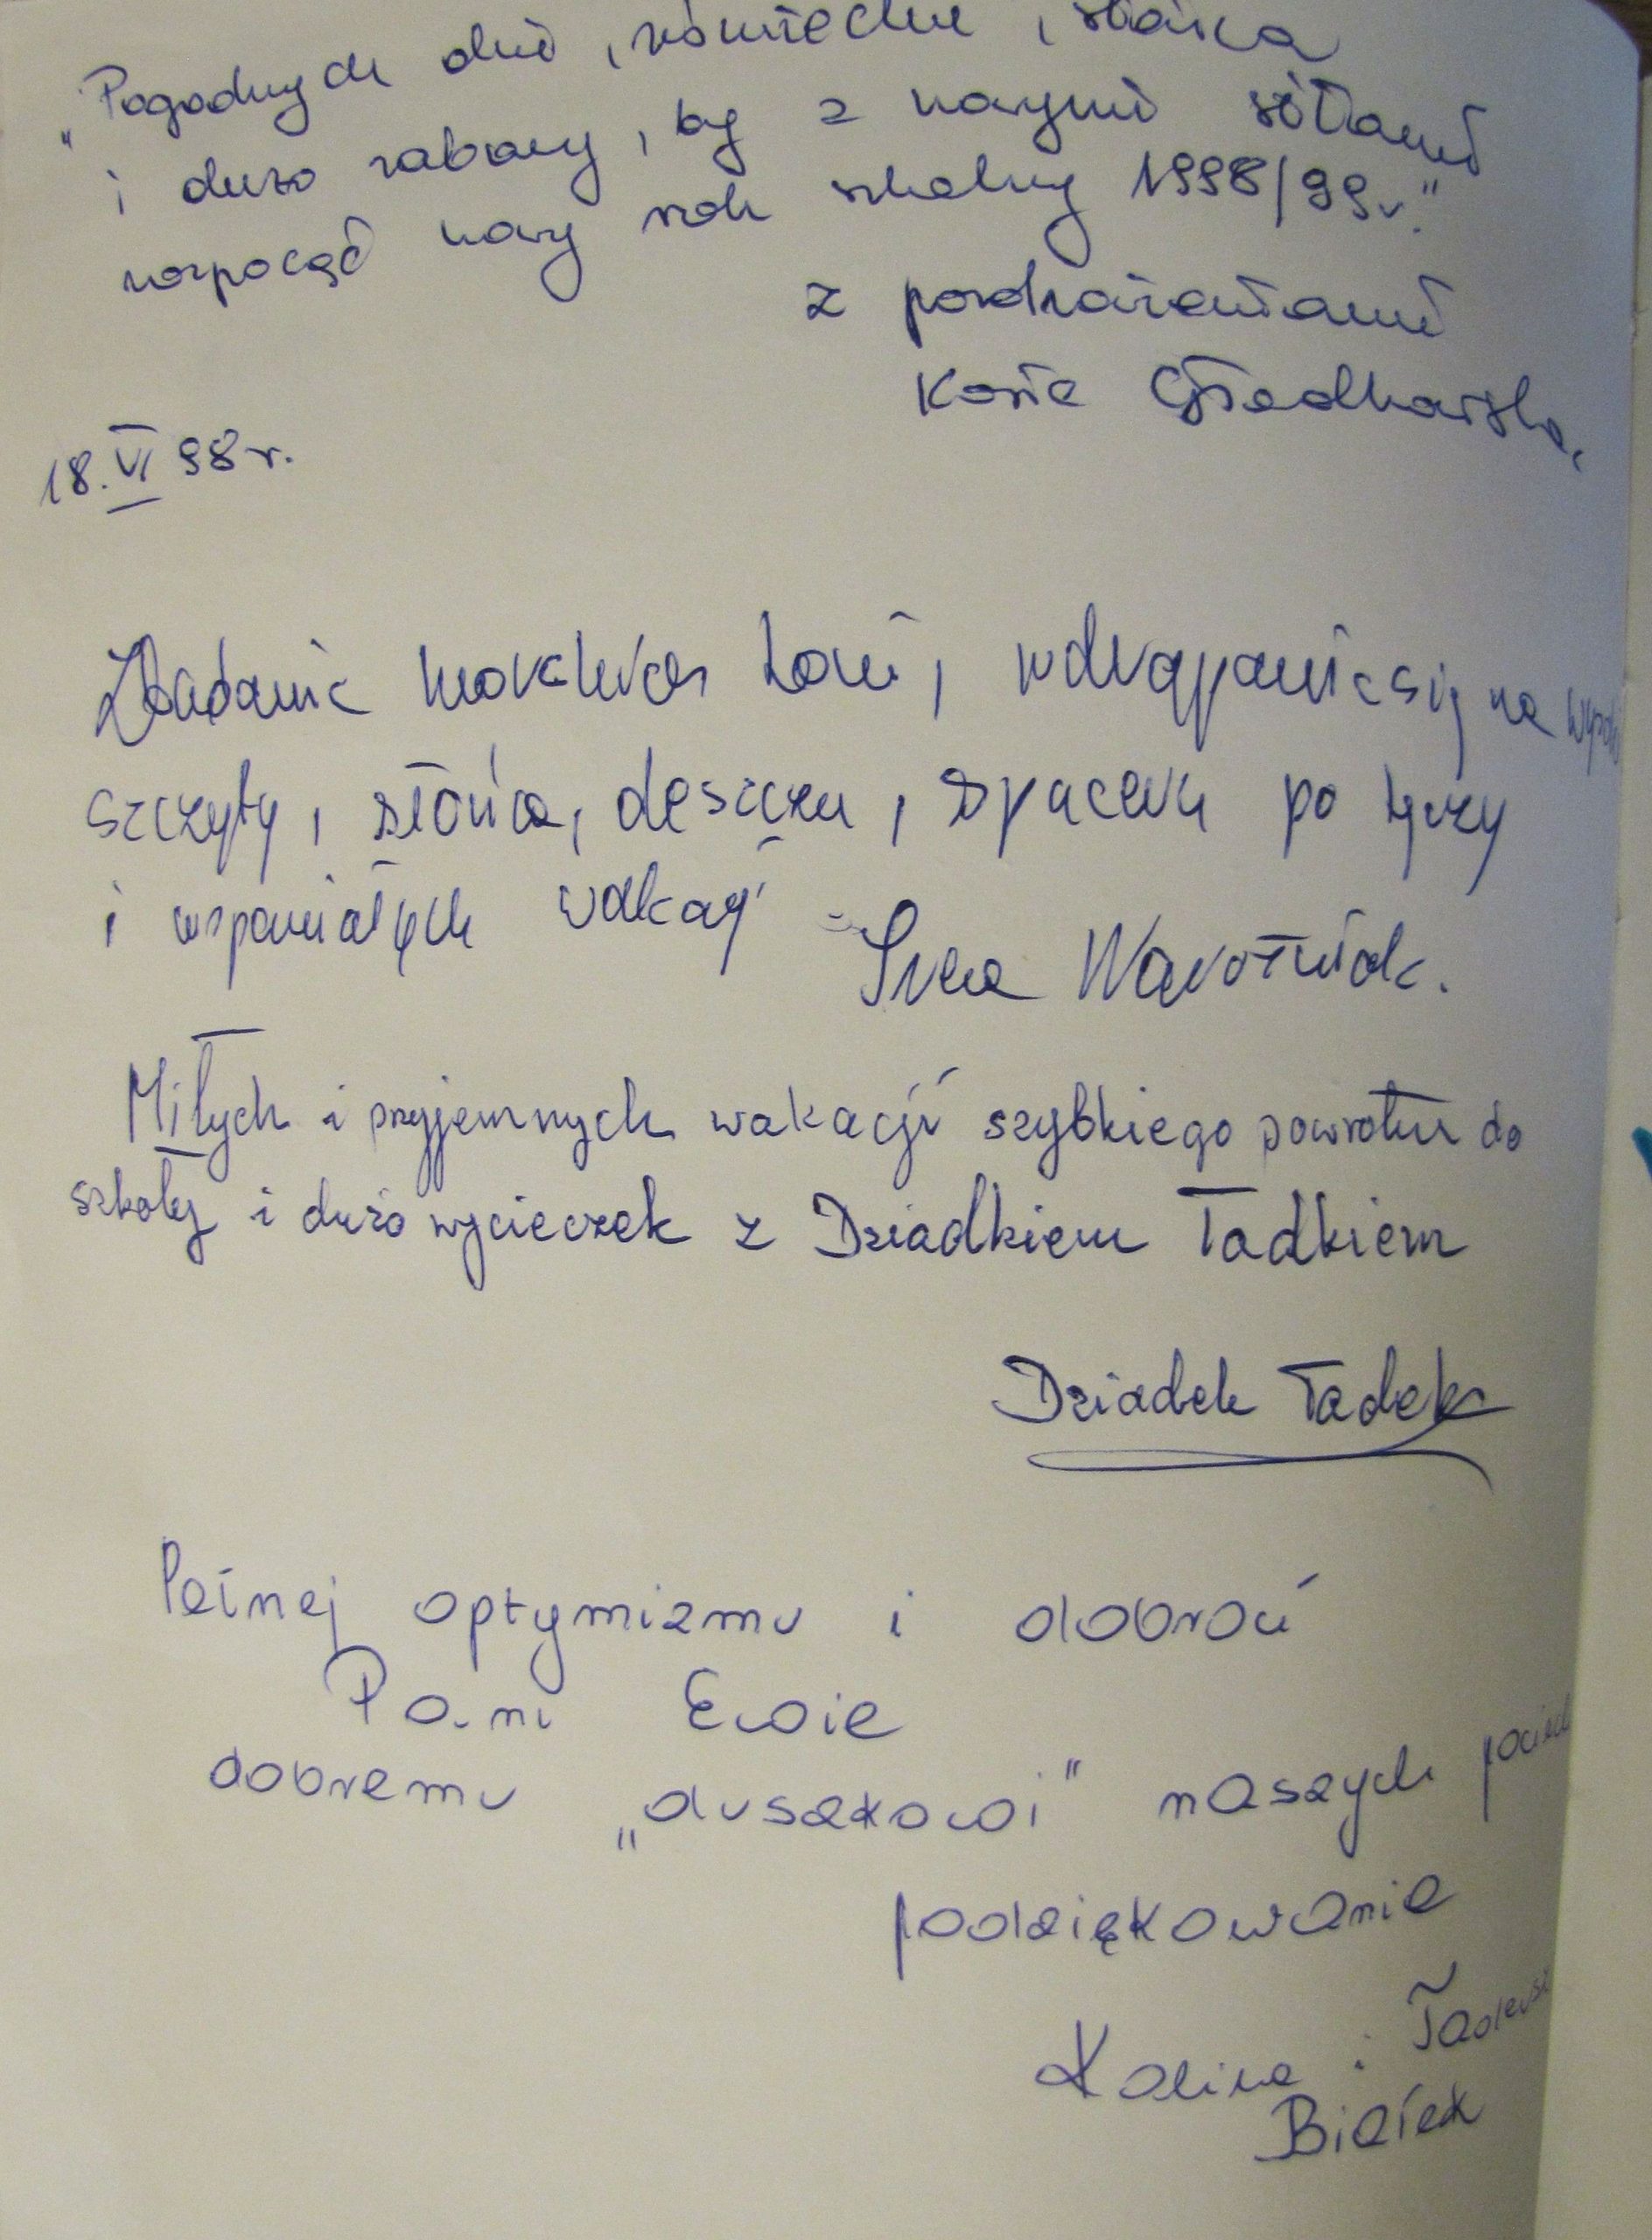 „Pogodnych dni, uśmiechu, słońca
i dużo zabawy, by z nowymi siłami
rozpocząć nowy rok szkolny 1998/99r."
z pozdrowieniami
Kasia
18.VI 98r.
Zbadania mokrych łąk, wdrapania się na
szczyty, słońca, deszczu, spaceru po tęczy
i wspaniałych wakacji
Miłych i przyjemnych wakacji szybkiego powrotu do
szkoły i dużo wycieczek z Dziadkiem Tadkiem
Dziadek Tadek
Pełnej optymizmu i dobroci
Pani Ewie
dobremu „duszkowi" naszych pociech
podziękowanie
Kalina i Tadeusz
Białek